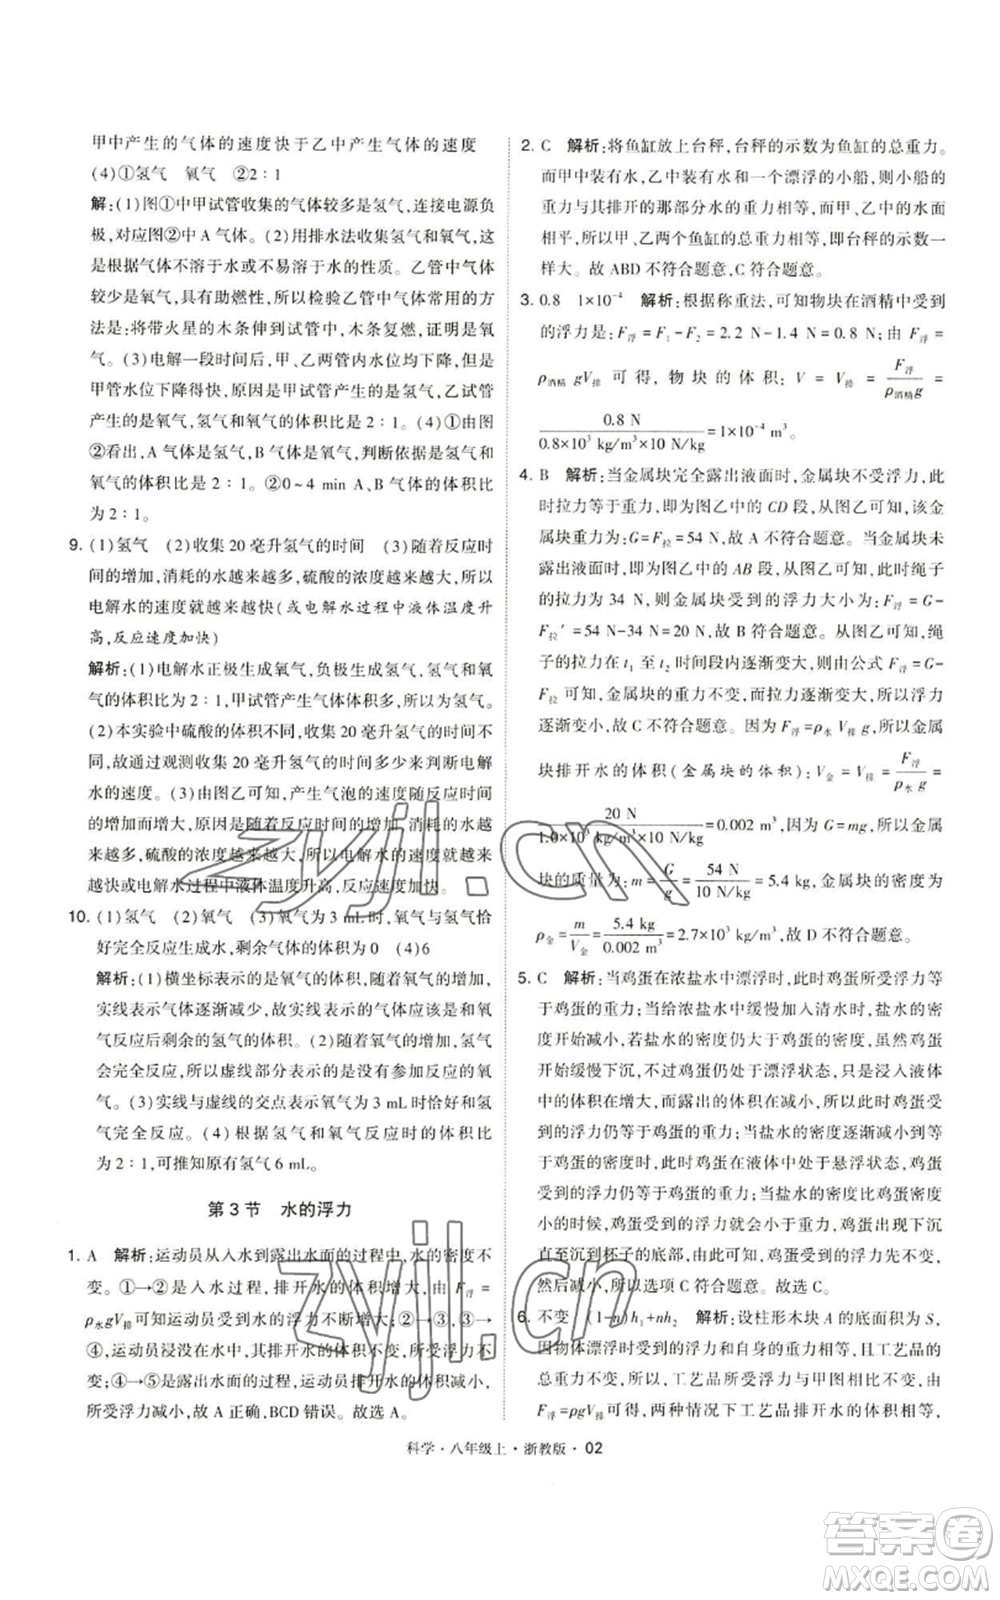 甲中产生的气体的速度快于乙中产生气体的速度
(4)①氢气　氧气　②2∶1
解:(1)图①中甲试管收集的气体较多是氢气,连接电源负
极,对应图②中 A 气体。(2)用排水法收集氢气和氧气,
这是根据气体不溶于水或不易溶于水的性质。乙管中气体
较少是氧气,具有助燃性,所以检验乙管中气体常用的方法
是:将带火星的木条伸到试管中,木条复燃,证明是氧
气。(3)电解一段时间后,甲、乙两管内水位均下降,但
甲管水位下降得快,原因是甲试管产生的是氢气,乙试管
产生的是氧气,氢气和氧气的体积比是 2∶1。(4)①由图
②看出,A 气体是氢气,B 气体是氧气,判断依据是氢气和
氧气的体积比是 2∶1。②0~4 min A、B 气体的体积比
为 2∶1。
9. (1)氢气　(2)收集 20 毫升氢气的时间　(3)随着反应时
间的增加,消耗的水越来越多,硫酸的浓度越来越大,所以
电解水的速度越来越快(或电解水过程中液体温度升
高,反应速度加快)
解析:(1)电解水正极生成氧气,负极生成氢气,氢气和氧
气的体积比为 2∶1,甲试管产生气体体积多,所以为氢气。
(2)本实验中硫酸的体积不同,收集 20 毫升氢气的时间不
同,故通过观测收集 20 毫升氢气的时间多少来判断电解
水的速度。(3)由图乙可知,产生气泡的速度随反应时间
的增加而增大,原因是随着反应时间的增加,消耗的水越
来越多,硫酸的浓度越来越大,所以电解水的速度越来
越快或电解水过程中液体温度升高,反应速度加快。
10. (1)氢气　(2)氧气　(3)氧气为 3 mL时,氧气与氢气恰
好完全反应生成水,剩余气体的体积为 0　(4)6
解析:(1)横坐标表示的是氧气的体积,随氧气的增加,
实线表示气体逐渐减小,故实线表示的气体应该是氧气
反应后剩余的氢气的体积。(2)虚线表示的气体是随氧
气体积的增加而增加,且是在氢气完全反应后才开始增
加,所以虚线部分表示的是没有参加反应的氧
气。(3)实线与虚线的交点表示氧气为 3 mL时恰好和氢
气完全反应。(4)根据氢气和氧气的体积比
为 2∶1,可推知原有氢气 6 mL。
第 3 节　水的浮力
1. A　解析:运动员从入水到露出水面的过程中,水的密度不
变。①→②是入水过程,排开水的体积增大,由 F浮 =
ρ水gV排可知运动员受到水的浮力不断增大;②→③,③→
④,运动员浸没在水中,其所受浮力不变,排开水的体积不
变;④→⑤是露出水面的过程,排开水的体积减小,
所受浮力减小,故 A 正确,BCD 错误。故选 A。
2. C　解析:将鱼缸放上台秤,台秤的示数为鱼缸的总重力。
而甲中装有水,乙中装有水和一个漂浮的小船,船的
重力与其排开的那部分水的重力相等,而甲、乙中的水面
相平,所以甲、乙两个鱼缸的总重力相等,即台秤的示数一
样大。故 ABD 不符合题意,C 符合题意。
3. 0.8　1×10⁻⁴　解析:根据称重法,可知物块在酒精中受到
的浮力是:F浮 = F₁−F₂ = 2.2 N−1.4 N = 0.8 N;由 F浮 =
ρ酒精 gV排 可得,物块的体积:V = V排 = F浮/ρ酒精g =
0.8 N/0.8×10³ kg/m³×10 N/kg = 1×10⁻⁴ m³。
4. B　解析:当金属块完全露出液面时,金属块不受浮力,此
时拉力等于重力,即为图乙中的 CD 段,从图乙可知,该金
属块重力为:G=F拉=54 N,故 A 不符合题意。当金属块未
露出液面时,即为图乙中的 AB 段,从图乙可知,此时绳子
的拉力为 34 N,则金属块受到的浮力大小为:F浮=G−
F拉′=54 N−34 N=20 N,故 B 符合题意。由图乙可知,绳
子的拉力在 t₁ 至 t₂ 时间段内逐渐变大,则由公式 F浮=G−
F拉 可知,因为金属块的重力不变,而拉力逐渐变大,所以浮力
逐渐变小,故 C 不符合题意。因为 F浮=ρ水 V排 g,所以金属
块排开水的体积(金属块的体积):V金=V排= F浮/ρ水 g =
20 N/1.0×10³ kg/m³×10 N/kg = 0.002 m³,因为 G=mg,所以金属
块的质量为:m = G/g = 54 N/10 N/kg = 5.4 kg,金属块的密度为:
ρ金 = m/V金 = 5.4 kg/0.002 m³ = 2.7×10³ kg/m³,故 D 不符合题意。
5. C　解析:当鸡蛋在浓盐水中漂浮时,此时鸡蛋所受浮力等
于鸡蛋的重力;当给浓盐水中缓慢加入清水时,盐水的密
度开始减小,若盐水的密度仍大于鸡蛋的密度,虽然鸡蛋
开始缓慢下沉,但鸡蛋仍会处于漂浮状态,只是浸入液体
中的体积在增大,而露出的体积在减小,所以此时鸡蛋受
到的浮力仍等于鸡蛋的重力;当盐水的密度与鸡蛋的
密度相等时,此时鸡蛋在液体中处于悬浮状态,鸡蛋受
到的浮力仍等于鸡蛋的重力;当盐水的密度比鸡蛋的密度
小的时候,鸡蛋受到的浮力小于鸡蛋的重力,所以鸡蛋下沉
直至沉到杯子的底部,则此过程中,鸡蛋受到浮力先不变,
然后减小,所以选项 C 符合题意。故选 C。
6. 不变　(1−n)h₁+nh₂　解析:设柱形木块 A 的底面积为 S,
因物体漂浮时受到的浮力和自身的重力相等,且工艺品的
重力不变,所以,工艺品所受的浮力与甲图相等,由
F浮=ρgV排可知,两种情况下工艺品排开水的体积相等,
科学·八年级上·浙教版·02
zyjl.cn
zyjl.cn
答案卷
MXQE.COM